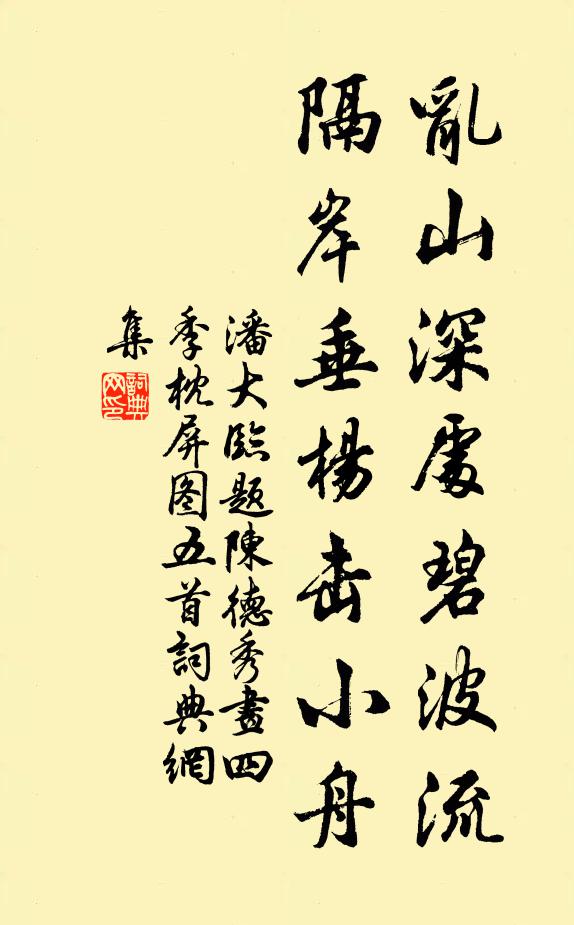 亂山深處碧波流
隔岸垂楊击小舟
潘大臨題陳德秀畫四
季枕屏图五首詞典網
集
詞典
网印